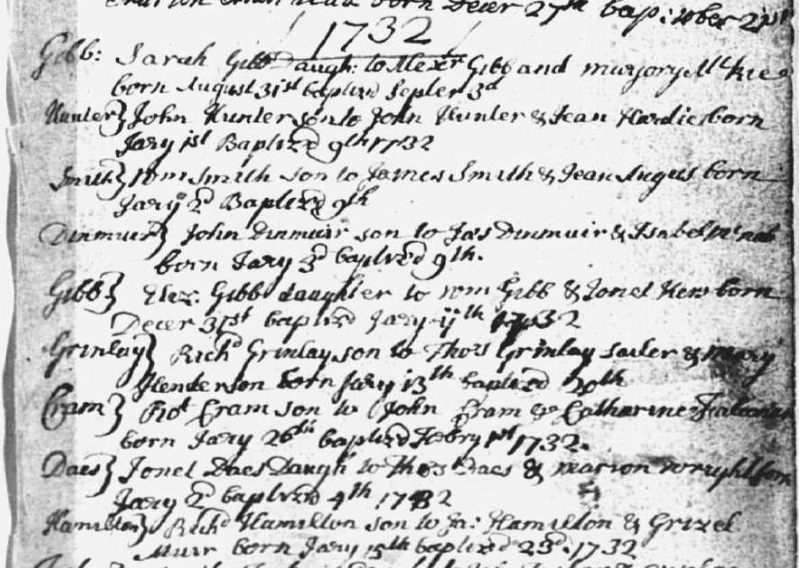 born Decer 27th bap: 21st
1732
Gibb: Sarah Gibb Daugh: to Alexr Gibb and marjory McKie
born August 31st baptized Septer 3d
Hunter} John Hunter son to John Hunter & Jean Hardie born
Jary 1st Baptized 9th 1732
Smith} Wm Smith son to James Smith & Jean Angus born
Jary 2d Baptized 9th
Dinmuir} John Dinmuir son to Jas Dinmuir & Isabel McNab
born Jary 3d baptized 9th.
Gibb} Eliz: Gibb daughter to Wm Gibb & Jonet Ker born
Decer 31st baptized Jary 11th 1732
Grinlay} Richd Grinlay son to Thos Grinlay sailer & mary
Henderson born Jary 13th baptized 20th
Cram} Robt Cram son to John Cram & Catharine
born Jary 26th baptized Febry 1st 1732.
Daes} Jonet Daes Daugh to Thos Daes & marion wright born
Jary 2d baptized 4th 1732
Hamilton} Richd Hamilton son to Ja: Hamilton & Grizel
Muir born Jary 15th baptized 23d. 1732